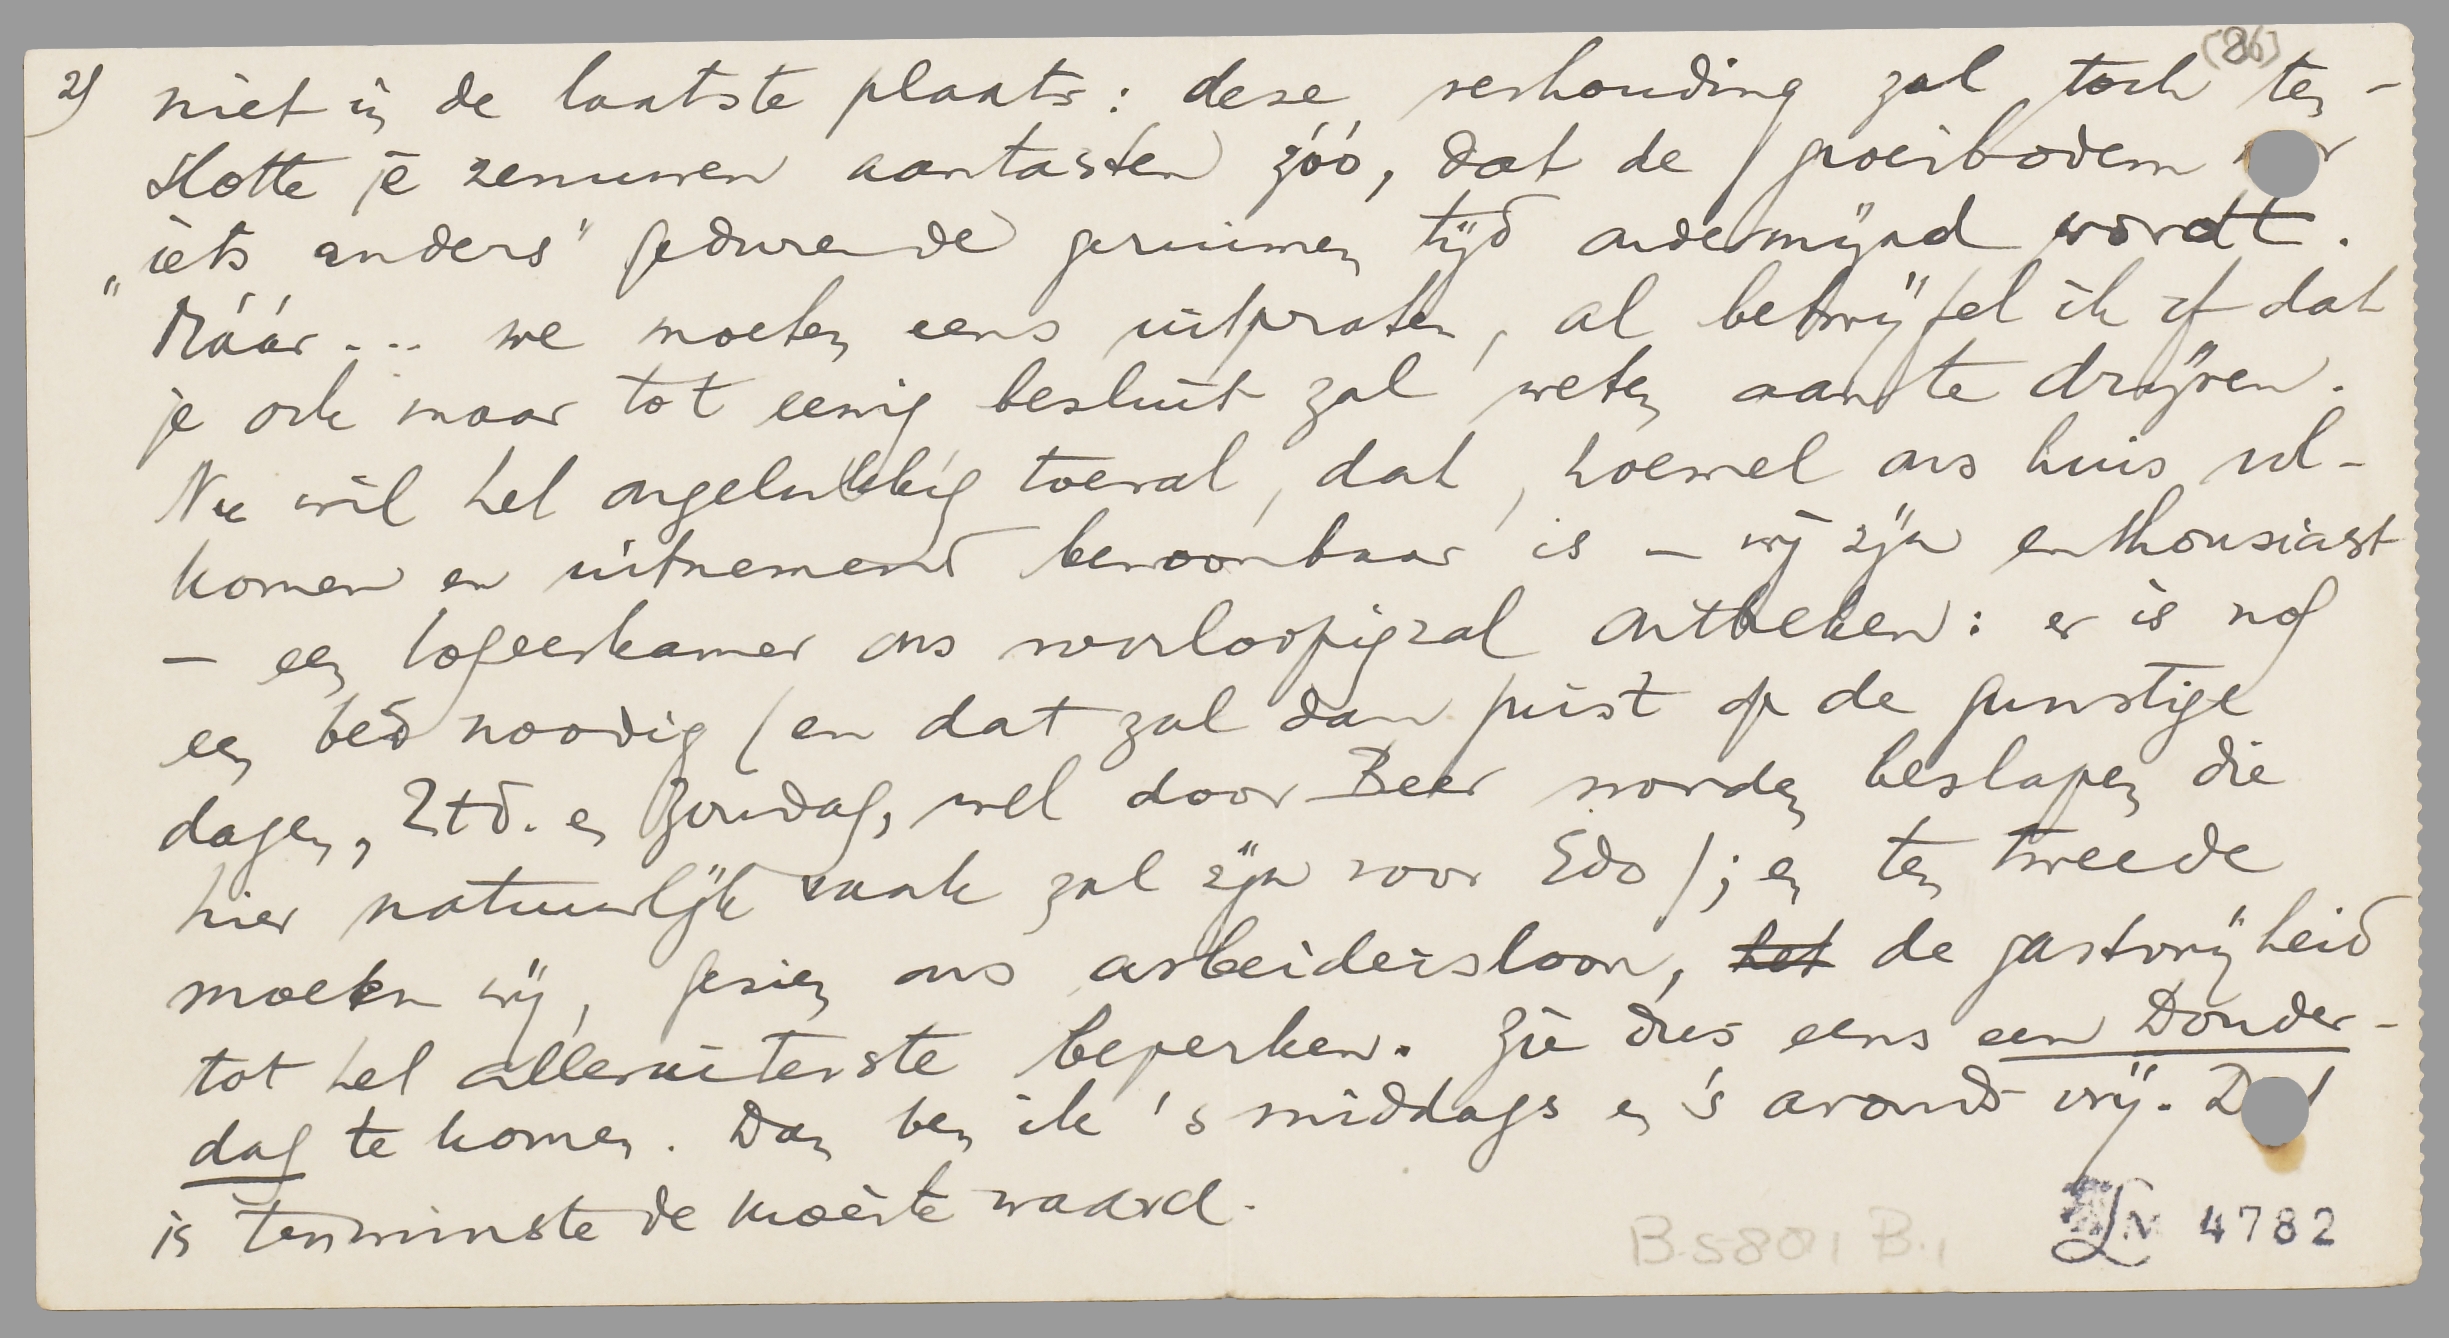 (86)
2) niet in de laatste plaats: deze verhouding zal toch ten-
slotte je zenuwen aantasten zóó, dat de groeibodem
„iets anders" gedurende geruimen tijd ondermijnd wordt.
Máár... we moeten eens uitpraten, al betwijfel ik of dat
je ook maar tot eenig besluit zal weten aan te drijven.
Nu wil het ongelukkig toeval, dat, hoewel ons huis vol-
komen en uitnemend bewoonbaar is – wij zijn enthousiast
– een logeerkamer ons voorloopig zal ontbreken: er is nog
een bed noodig (en dat zal dan juist op de gunstige
dagen, Ztd. en Zondag, wel door Beer worden beslapen die
hier natuurlijk vaak zal zijn voor Edo); en ten tweede
moeten wij, gezien ons arbeidersloon, het de gastvrijheid
tot het alleruiterste beperken. Zie dus eens een Donder-
dag te komen. Dan ben ik 's middags en 's avonds vrij. D t
is tenminste de moeite waard.
B.5801 B.1
LM 4782